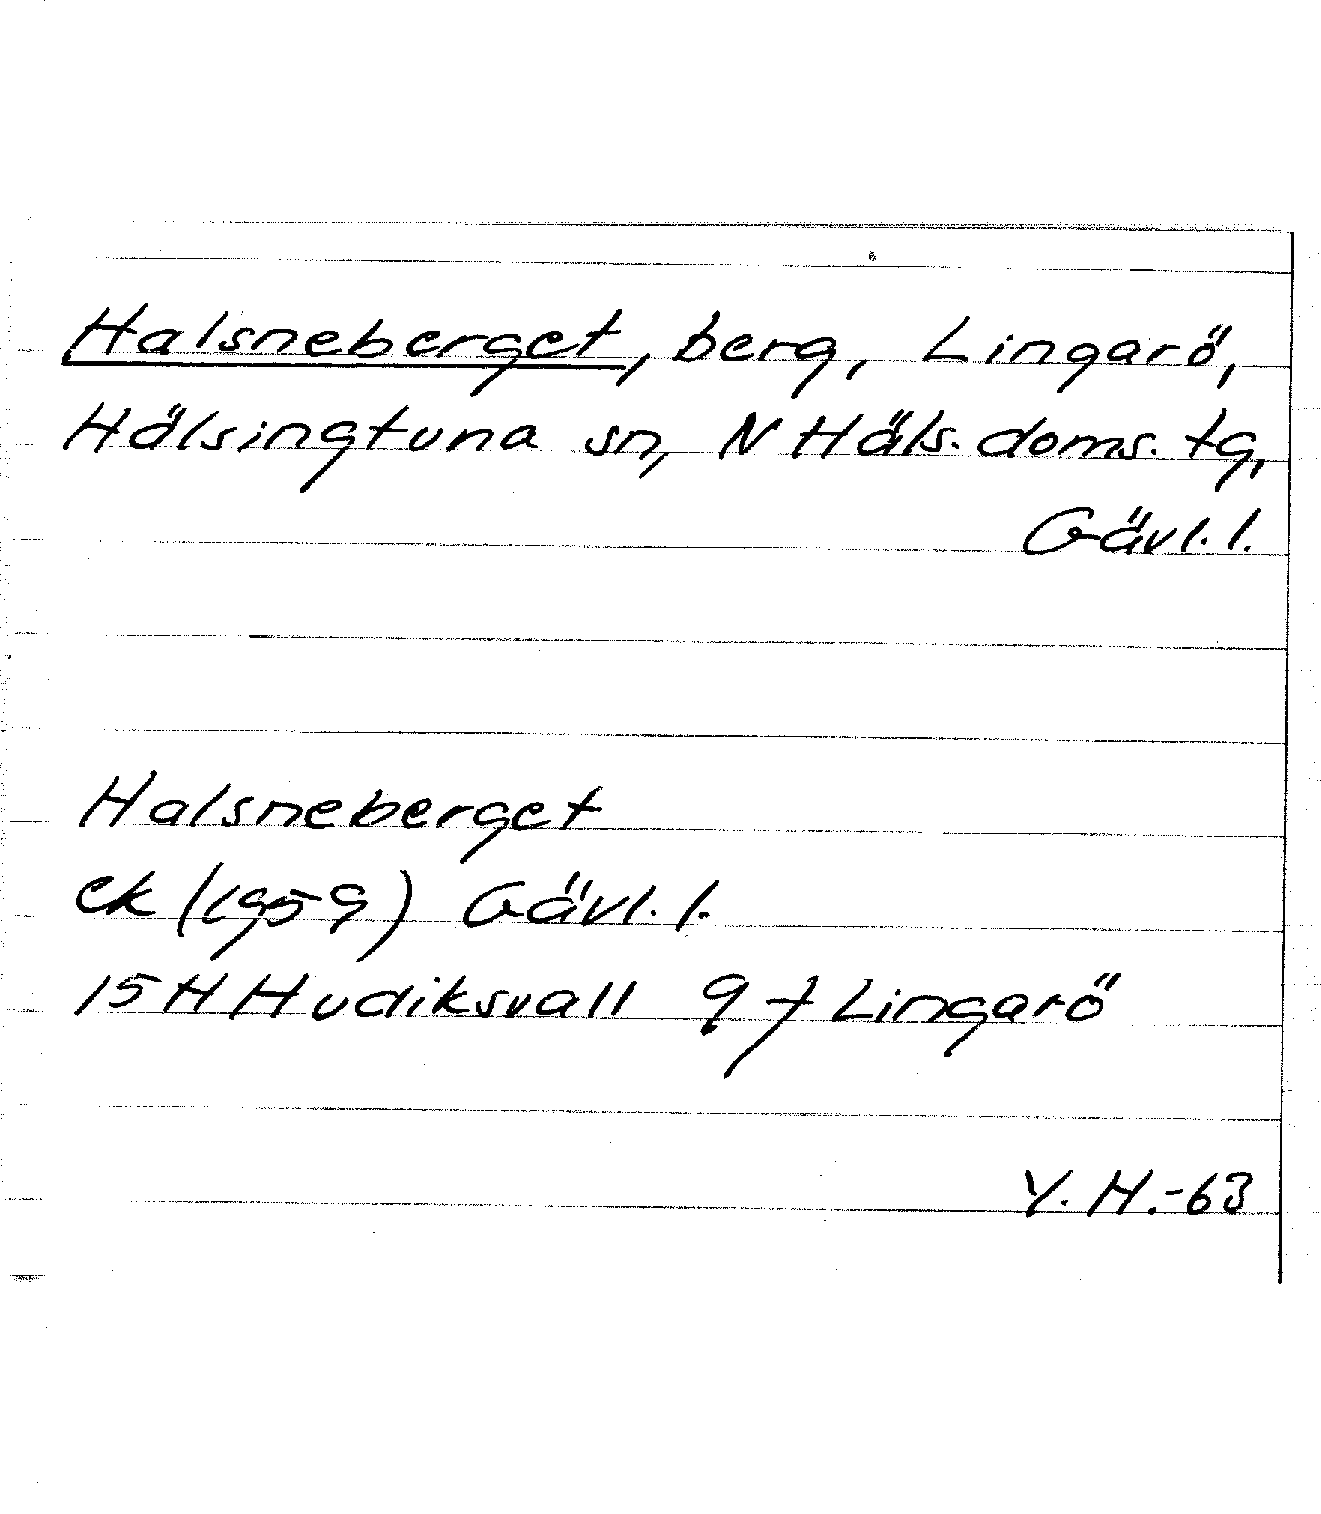 Halsneberget, berg, Lingarö,
Hälsingtuna sn, N Häls. doms. tg,
Gävl. l.
Halsneberget
ek (1959) Gävl. l.
15 H Hudiksvall 9 f Lingarö
Y. H. -63